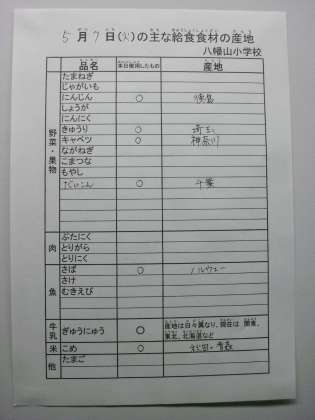 5月7日(火)の主な給食食材の産地
八幡山小学校
品名 本日使用したもの 産地
野菜・果物
たまねぎ
じゃがいも
にんじん ○ 徳島
しょうが
にんにく
きゅうり ○ 埼玉
キャベツ ○ 神奈川
ながねぎ
こまつな
もやし
だいこん ○ 千葉
肉
ぶたにく
とりがら
とりにく
魚
さば ○ ノルウェー
さけ
むきえび
牛乳 ぎゅうにゅう ○ 産地は日々異なり、現在は 関東、
東北、北海道など
米 こめ ○ 秋田・青森
他 たまご